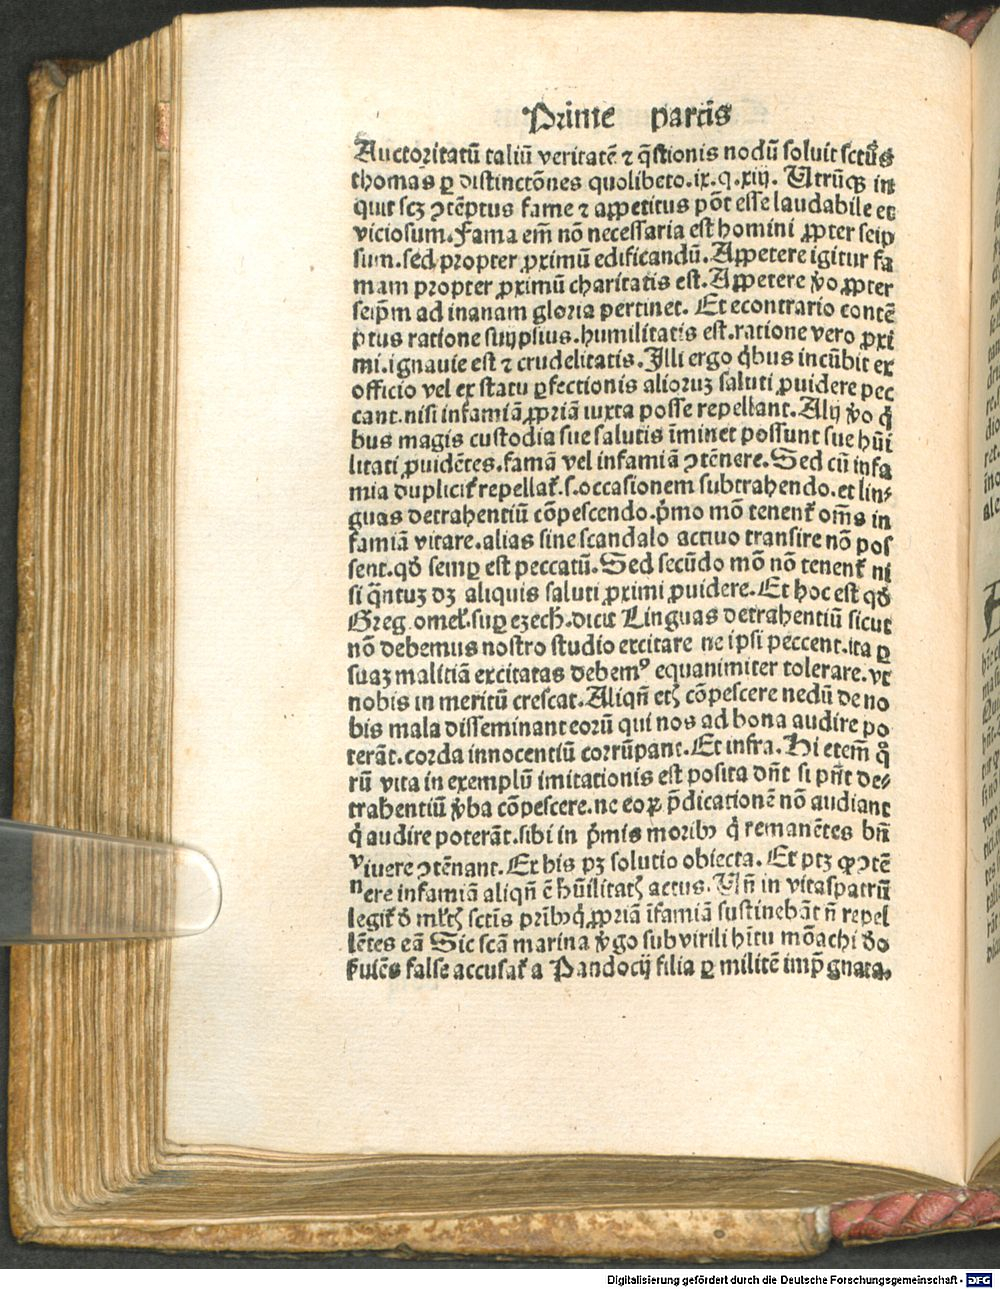 Prime partis
Auctoritatū taliū veritatē ⁊ q̄stionis nodū soluit sctūs
thomas ꝑ distinctōnes quolibeto.ix.q.xiij. Utrūqꝫ in
quit scꝫ ꝯtēptus fame ⁊ appetitus pōt esse laudabile et
viciosum. Fama em̄ nō necessaria est homini ꝓpter seip
sum. sed propter ꝓximū edificandū. Appetere igitur fa
mam propter ꝓximū charitatis est. Appetere v̓o ꝓpter
seip̄m ad inanam gloria pertinet. Et econtrario contē
ptus ratione suijpsius. humilitatis est. ratione vero ꝓxi
mi. ignauie est ⁊ crudelitatis. Illi ergo q̓bus incūbit ex
officio vel ex statu ꝑfectionis alioruꝫ saluti ꝓuidere pec
cant. nisi infamiā ꝓpriā iuxta posse repellant. Alij v̓o q̓
bus magis custodia sue salutis īminet possunt sue hūi
litati ꝓuidētes. famā vel infamiā ꝯtēnere. Sed cū infa
mia duplicit̓ repellat̓. s. occasionem subtrahendo. et lin⸗
guas detrahentiū cōpescendo. p̄mo mō tenent̓ om̄s in
famiā vitare. alias sine scandalo actiuo transire nō pos
sent. qd̓ semꝑ est peccatū. Sed secūdo mō nō tenent̓ ni
si q̄ntuꝫ dꝫ aliquis saluti ꝓximi ꝓuidere. Et hoc est qd̓
Greg. omel̓. suꝑ ezech̓. dicit Linguas detrahentiū sicut
nō debemus nostro studio excitare ne ipsi peccent. ita ꝑ
suaꝫ malitiā excitatas debemꝰ equanimiter tolerare. vt
nobis in meritū crescat. Aliqn̄ etꝫ cōpescere nedū de no
bis mala disseminant eorū qui nos ad bona audire po
terāt. corda innocentiū corrūpant. Et infra. Hi etem̄ q̊
rū vita in exemplū imitationis est posita dn̄t si pn̄t de⸗
trahentiū v̓ba cōpescere. ne eoꝝ p̄dicationē nō audiant
q̓ audire poterāt. sibi in p̄mis moribꝫ q̓ remanētes bn̄
viuere ꝯtēnant. Et his pꝫ solutio obiecta. Et ptꝫ ꝙ ꝯtē
nere infamiā aliqn̄ ē hūilitatꝫ actus. Un̄ in vitaspatrū
legit̓ d̓ ml̓tꝫ sctīs pr̄ibꝫ q̓ ꝓpriā īfamiā sustinebāt n̄ repel
lētes eā Sic scā marina v̓go sub virili hītu mōachi d̓o
ẜuiēs false accusat̓ a Pandocij filia ꝑ militē imp̄gnata.
Digitalisierung gefördert durch die Deutsche Forschungsgemeinschaft - DFG